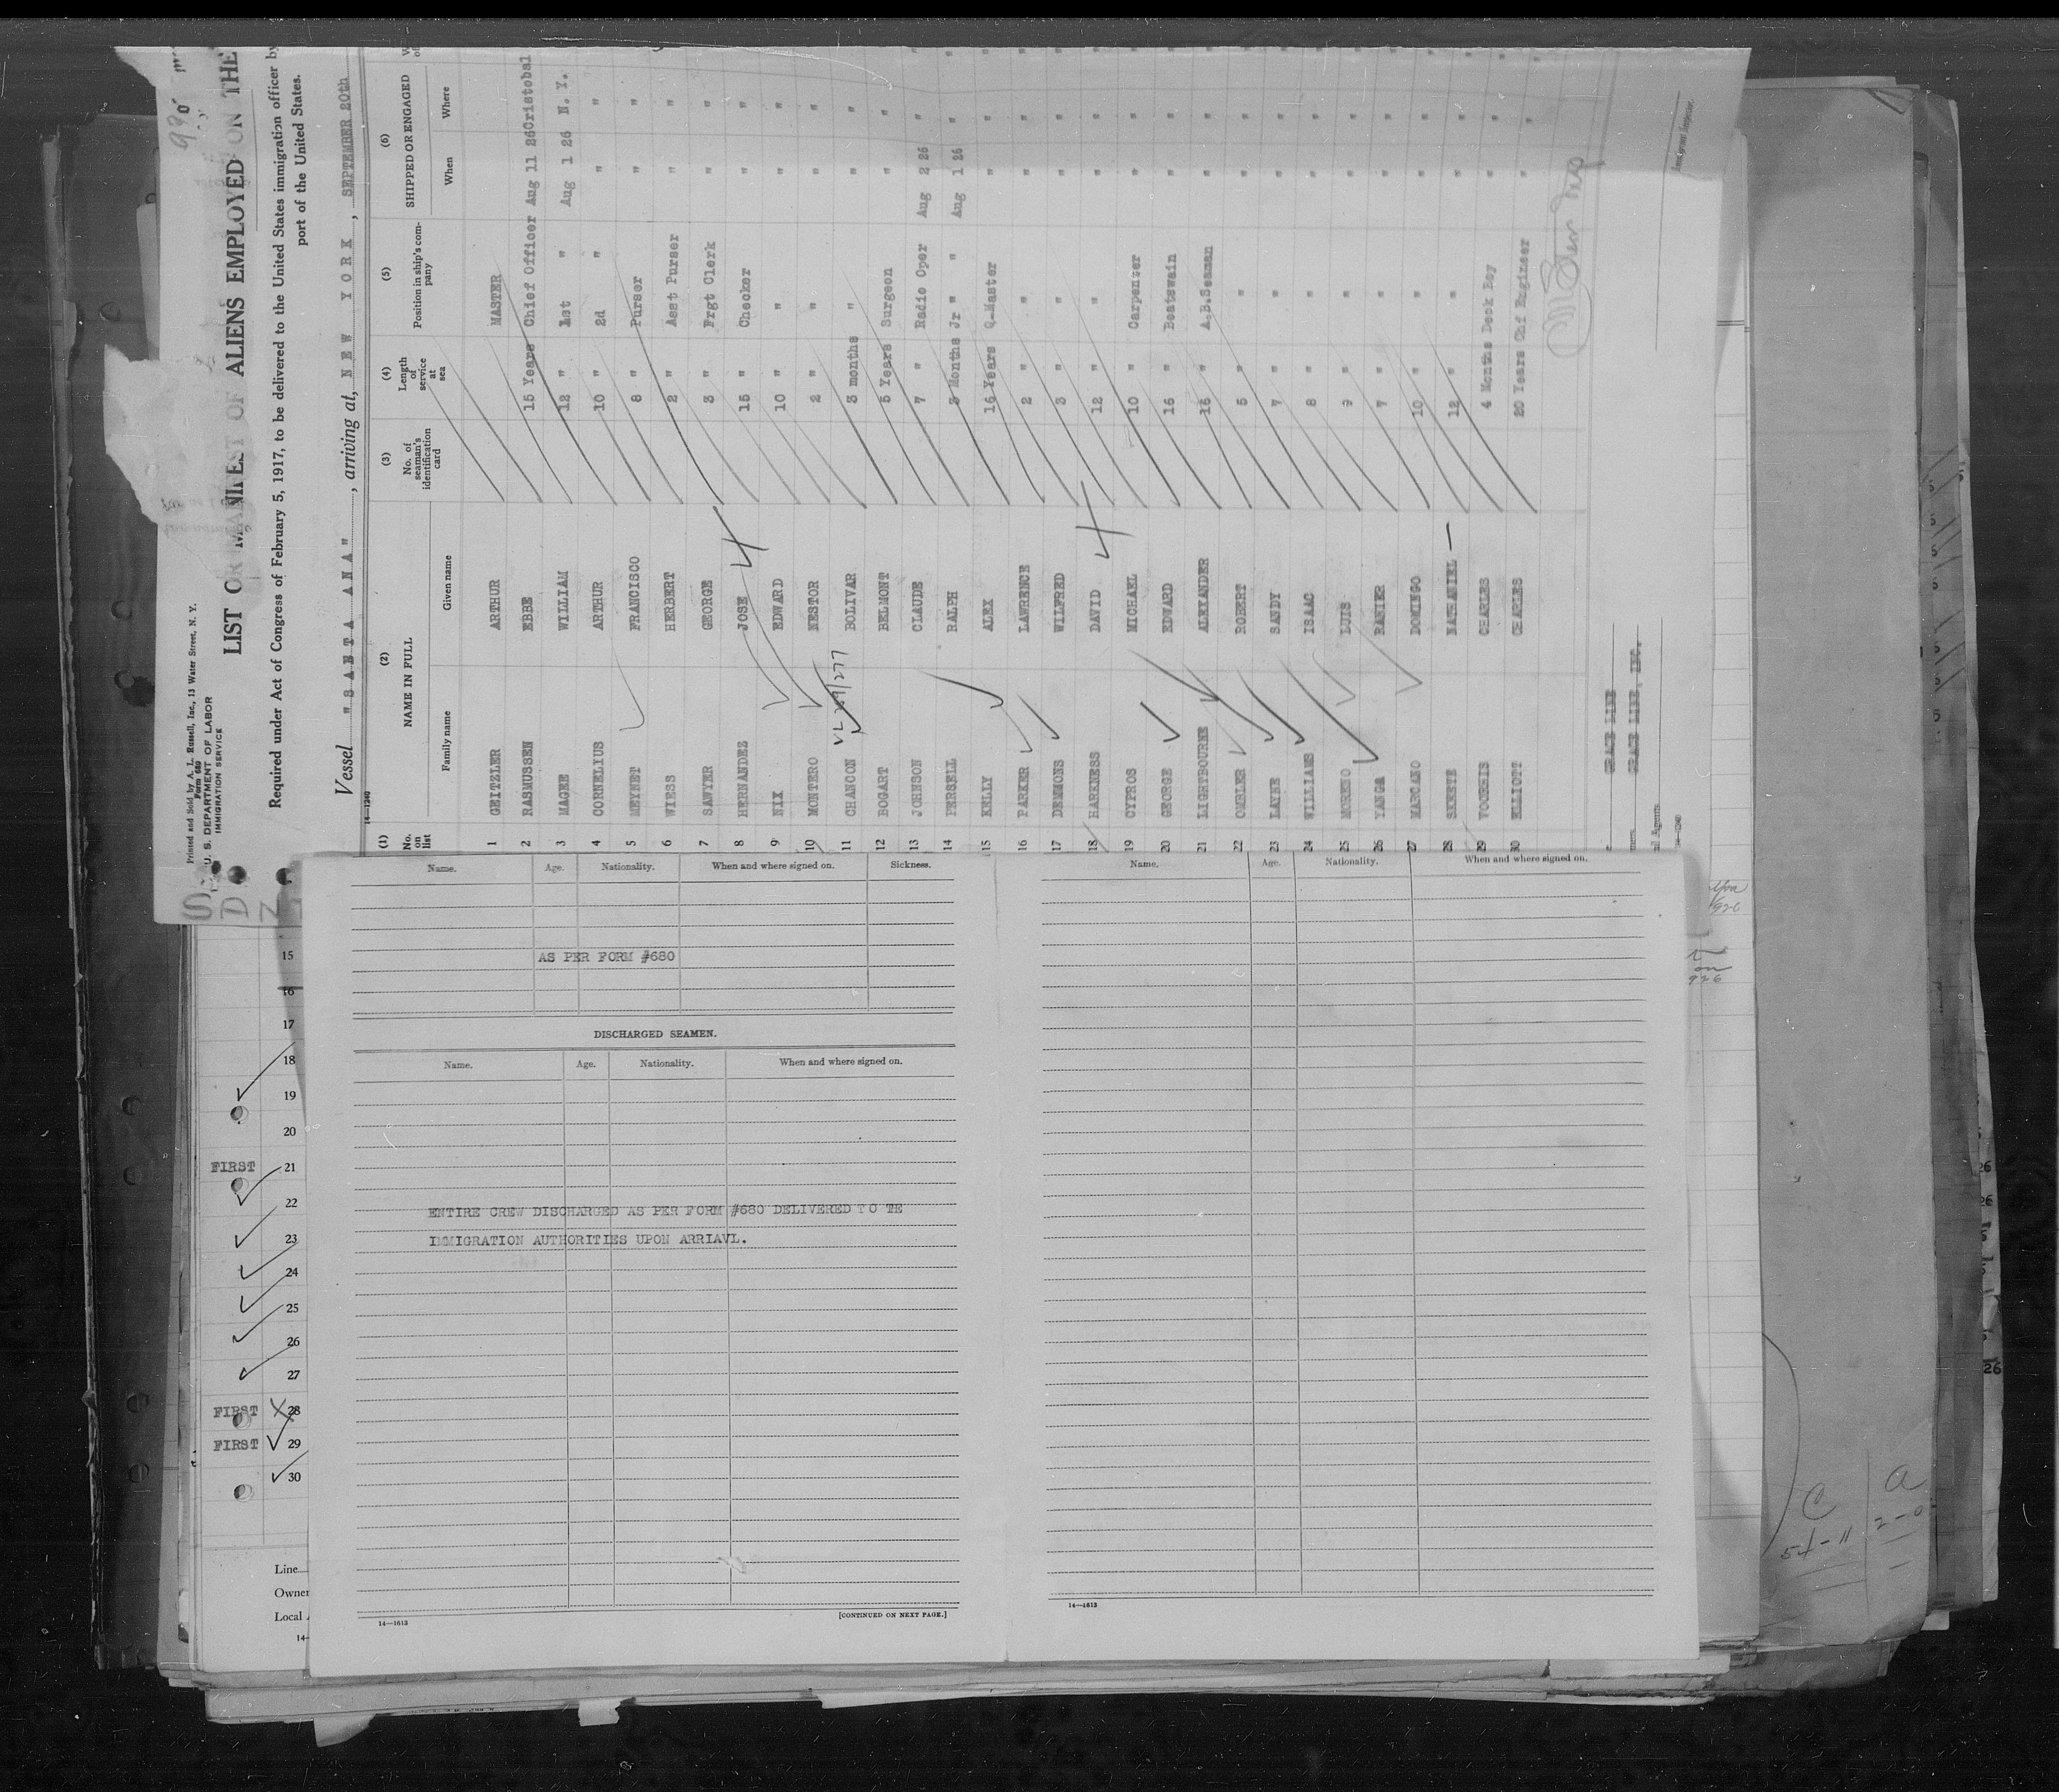 Printed and Sold by A. L. Russell, Inc., 13 Water Street, N. Y.
Form 689
U. S. DEPARTMENT OF LABOR
IMMIGRATION SERVICE
LIST OR MANIFEST OF ALIENS EMPLOYED ON THE
Required under Act of Congress of February 5, 1917, to be delivered to the United States immigration officer by
port of the United States.
Vessel "SANTA ANA", arriving at, NEW YORK, SEPTEMBER 20th
14—1240
(1) (2) (3) (4) (5) (6)
No. on list NAME IN FULL No. of seaman's identification card Length of service at sea Position in ship's company SHIPPED OR ENGAGED
Family name Given name When Where
1 GEITZLER ARTHUR MASTER
2 RASMUSSEN EBBE 15 Years Chief Officer Aug 11 26 Cristobal
3 MAGEE WILLIAM 12 " 1st " Aug 1 26 N. Y.
4 CORNELIUS ARTHUR 10 " 2d " " "
5 MEYNET FRANCISCO 8 " Purser " "
6 WIESS HERBERT 2 " Asst Purser " "
7 SAWYER GEORGE 3 " Frgt Clerk " "
8 HERNANDEZ JOSE 15 " Checker " "
9 NIX EDWARD 10 " " " "
10 MONTERO NESTOR 2 " " " "
11 CHANCON BOLIVAR 3 months " " "
12 BOGART BELMONT 5 Years Surgeon " "
13 JOHNSON CLAUDE 7 " Radio Oper Aug 2 26 "
14 PERSELL RALPH 3 Months Jr " " Aug 1 26 "
15 KELLY ALEX 16 Years Q-Master " "
16 PARKER LAWRENCE 2 " " " "
17 DEMMONS WILFRED 3 " " " "
18 HARKNESS DAVID 12 " " " "
19 CYPROS MICHAEL 10 " Carpenter " "
20 GEORGE EDWARD 16 " Boatswain " "
21 LIGHTBOURNE ALEXANDER 16 " A.B.Seaman " "
22 OMBLER ROBERT 5 " " " "
23 LAYNE SANDY 7 " " " "
24 WILLIAMS ISAAC 8 " " " "
25 MORENO LUIS 9 " " " "
26 YANGA RANIER 7 " " " "
27 MARCANO DOMINGO 10 " " " "
28 SKEETE NATHANIEL 12 " " " "
29 VOORHIS CHARLES 4 Months Deck Boy " "
30 ELLIOTT CHARLES 20 Years Chf Engineer " "
GRACE LINE
GRACE LINE, INC.
Immigrant Inspector.
Name. Age. Nationality. When and where signed on. Sickness.
AS PER FORM #680
DISCHARGED SEAMEN.
Name. Age. Nationality. When and where signed on.
ENTIRE CREW DISCHARGED AS PER FORM #680 DELIVERED TO TE
IMMIGRATION AUTHORITIES UPON ARRIAVL.
[CONTINUED ON NEXT PAGE.]
14—1613
Name. Age. Nationality. When and where signed on.
14—1613
15
16
17
18
19
20
FIRST 21
22
23
24
25
26
27
FIRST 28
FIRST 29
30
Line
Owner
Local
14—
C a
54-11 2-0
26
26
26